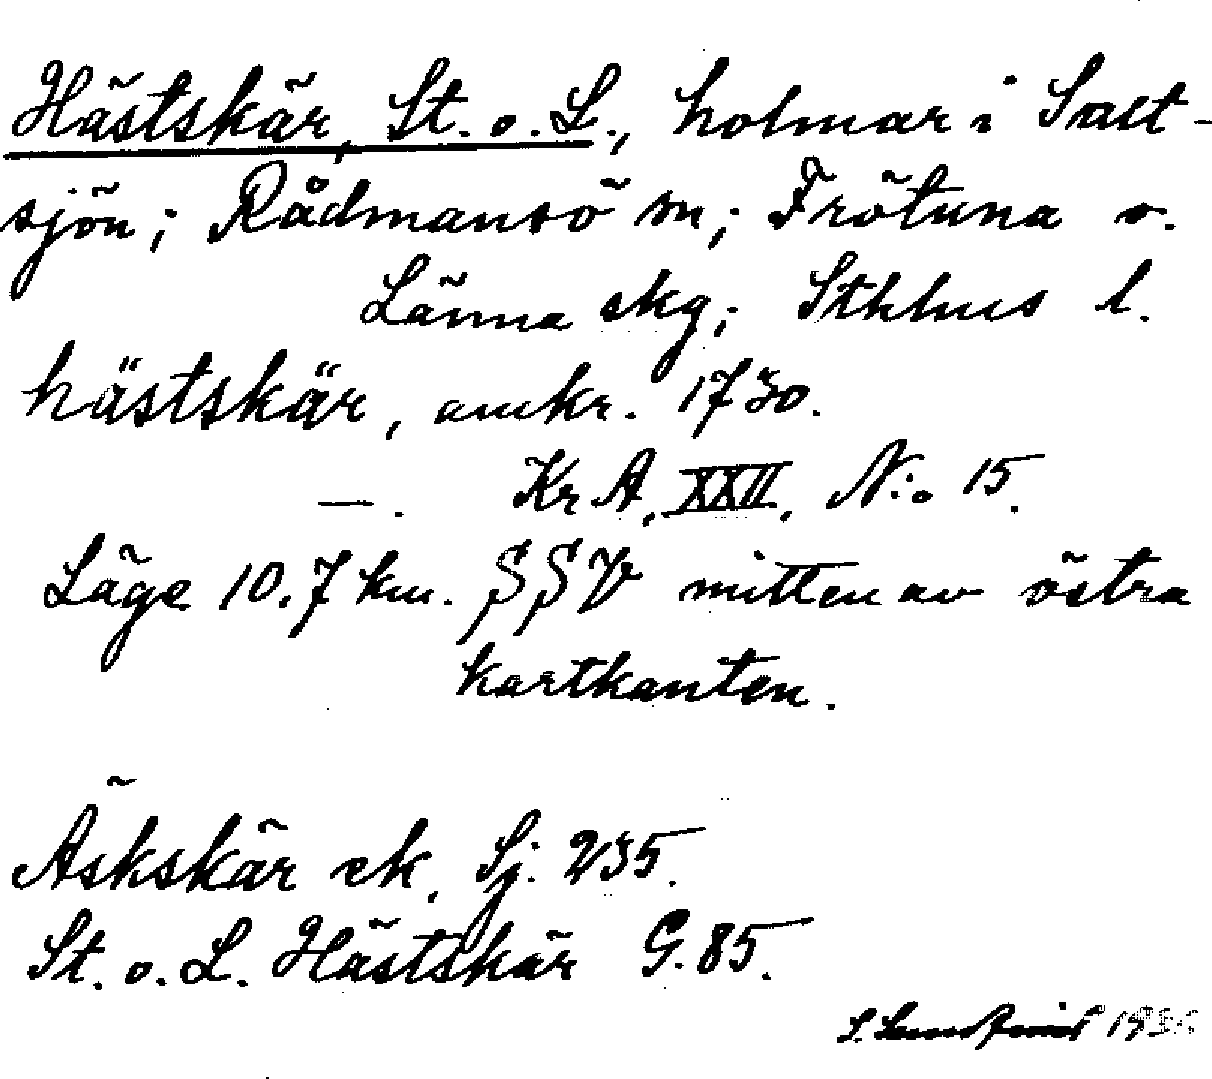 Hästskär, St. o. L., holmar i Salt-
sjön; Rådmansö sn; Frötuna o.
Länna skg; Sthlms l.
hästskär, omkr. 1730.
—. KrA, XXII, N:o 15.
Läge 10.7 km. SSV mitten av östra
kartkanten.
Äskskär ek. Sj. 235.
St. o. L. Hästskär G. 85.